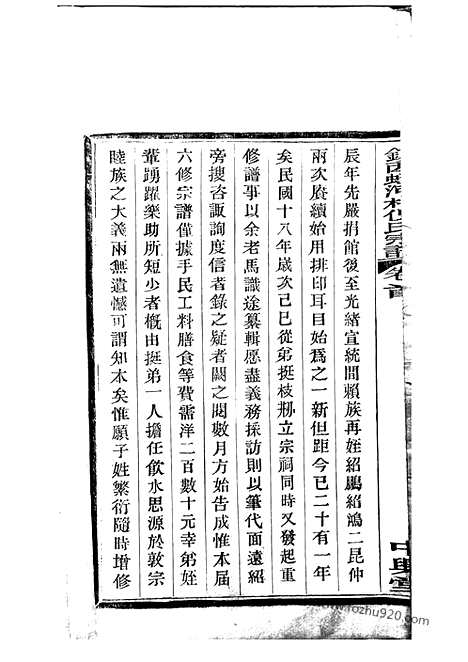 辰年先嚴捐館後至光緒宣統間賴族再姪紹鵬紹鴻二昆仲
兩次賡續始用排印耳目始爲之一新但距今已二十有一年
矣民國十八年歲次己巳從弟挺枝剏立宗祠同時又發起重
修譜事以余老馬識途纂輯愿盡義務採訪則以筆代面遠紹
旁搜咨諏詢度信者錄之疑者闕之閱數月方始告成惟本届
六修宗譜僅據手民工料膳食等費需洋二百數十元幸弟姪
輩踴躍樂助所短少者概由挺弟一人擔任飲水思源於敦宗
睦族之大義兩無遺憾可謂知本矣惟願子姓繁衍隨時增修
氏宗譜 卷首
中興堂
www.fozhu920.com